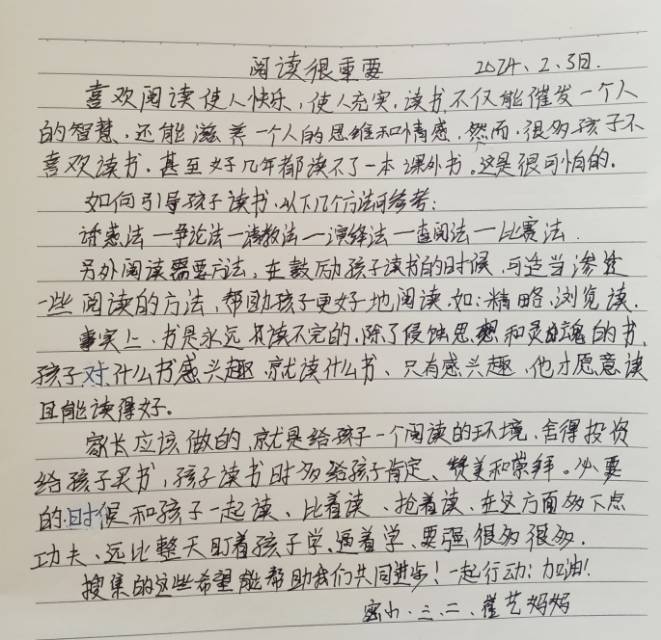 阅读很重要 2024、2、3日.
喜欢阅读使人快乐,使人充实,读书不仅能催发一个人
的智慧、还能滋养一个人的思维和情感,然而,很多孩子不
喜欢读书,甚至好几年都读不了一本课外书。这是很可怕的.
如何引导孩子读书,以下几个方法可参考:
诱惑法—争论法—请教法—演绎法—查阅法—比赛法.
另外阅读需要方法,在鼓励孩子读书的时候,可适当渗透
一些阅读的方法,帮助孩子更好地阅读,如:精略,浏览读.
事实上、书是永远读不完的,除了侵蚀思想和灵魂的书,
孩子对什么书感兴趣,就读什么书、只有感兴趣,他才愿意读
且能读得好。
家长应该做的,就是给孩子一个阅读的环境、舍得投资
给孩子买书,孩子读书时多给孩子肯定、赞美和崇拜。必要
的时候和孩子一起读、比着读、抢着读、在这方面多下点
功夫、远比整天盯着孩子学、逼着学、要强很多很多.
搜集的这些希望能帮助我们共同进步!一起行动:加油!
小、三、二、崔艺妈妈